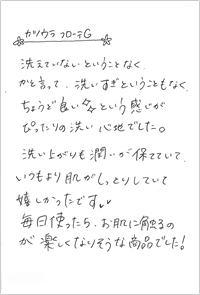 カツウラ フローテG
洗えていないということなく、
かと言って、洗いすぎということもなく、
ちょうど良い☆☆という感じが
ぴったりの洗い心地でした。
洗い上がりも潤いが保てていて、
いつもより肌がしっとりしていて
嬉しかったです。
毎日使ったら、お肌に触るの
が楽しくなりそうな商品でした!